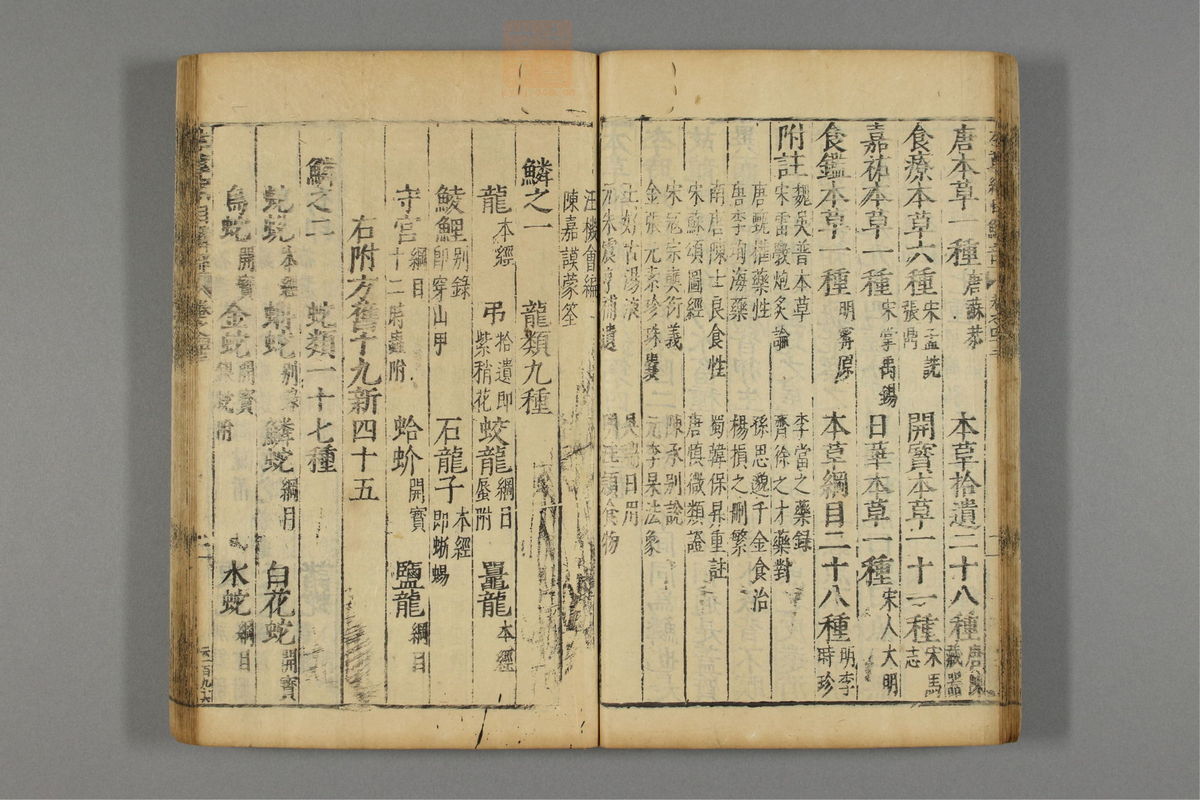 唐本草一種 唐蘇恭 本草拾遺二十八種 唐陳藏器
食療本草六種 宋孟詵張鼎 開寶本草一十一種 宋馬志
嘉祐本草一種 宋掌禹錫 日華本草一種 宋人大明
食鑑本草一種 明甯原 本草綱目二十八種 明李時珍
附註
魏吳普本草 李當之藥錄
宋雷斆炮炙論 齊徐之才藥對
唐甄權藥性 孫思邈千金食治
唐李珣海藥 楊損之刪繁
南唐陳士良食性 蜀韓保昇重註
宋蘇頌圖經 唐慎微類證
宋寇宗奭衍義 陳承別說
金張元素珍珠囊 元李杲法象
王好古湯液 吳瑞日用
元朱震亨補遺 明汪穎食物
汪機會編
陳嘉謨蒙筌
鱗之一 龍類九種
龍 本經 弔 拾遺即紫稍花 蛟龍 綱目蜃附 鼉龍 本經
鯪鯉 別錄即穿山甲 石龍子 本經即蜥蜴
守宮 綱目十二時蟲附 蛤蚧 開寶 鹽龍 綱目
右附方舊十九新四十五
鱗之二 蛇類一十七種
蛇蛻 本經 蚺蛇 別錄 鱗蛇 綱目 白花蛇 開寶
烏蛇 開寶 金蛇 開寶銀蛇附 水蛇 綱目